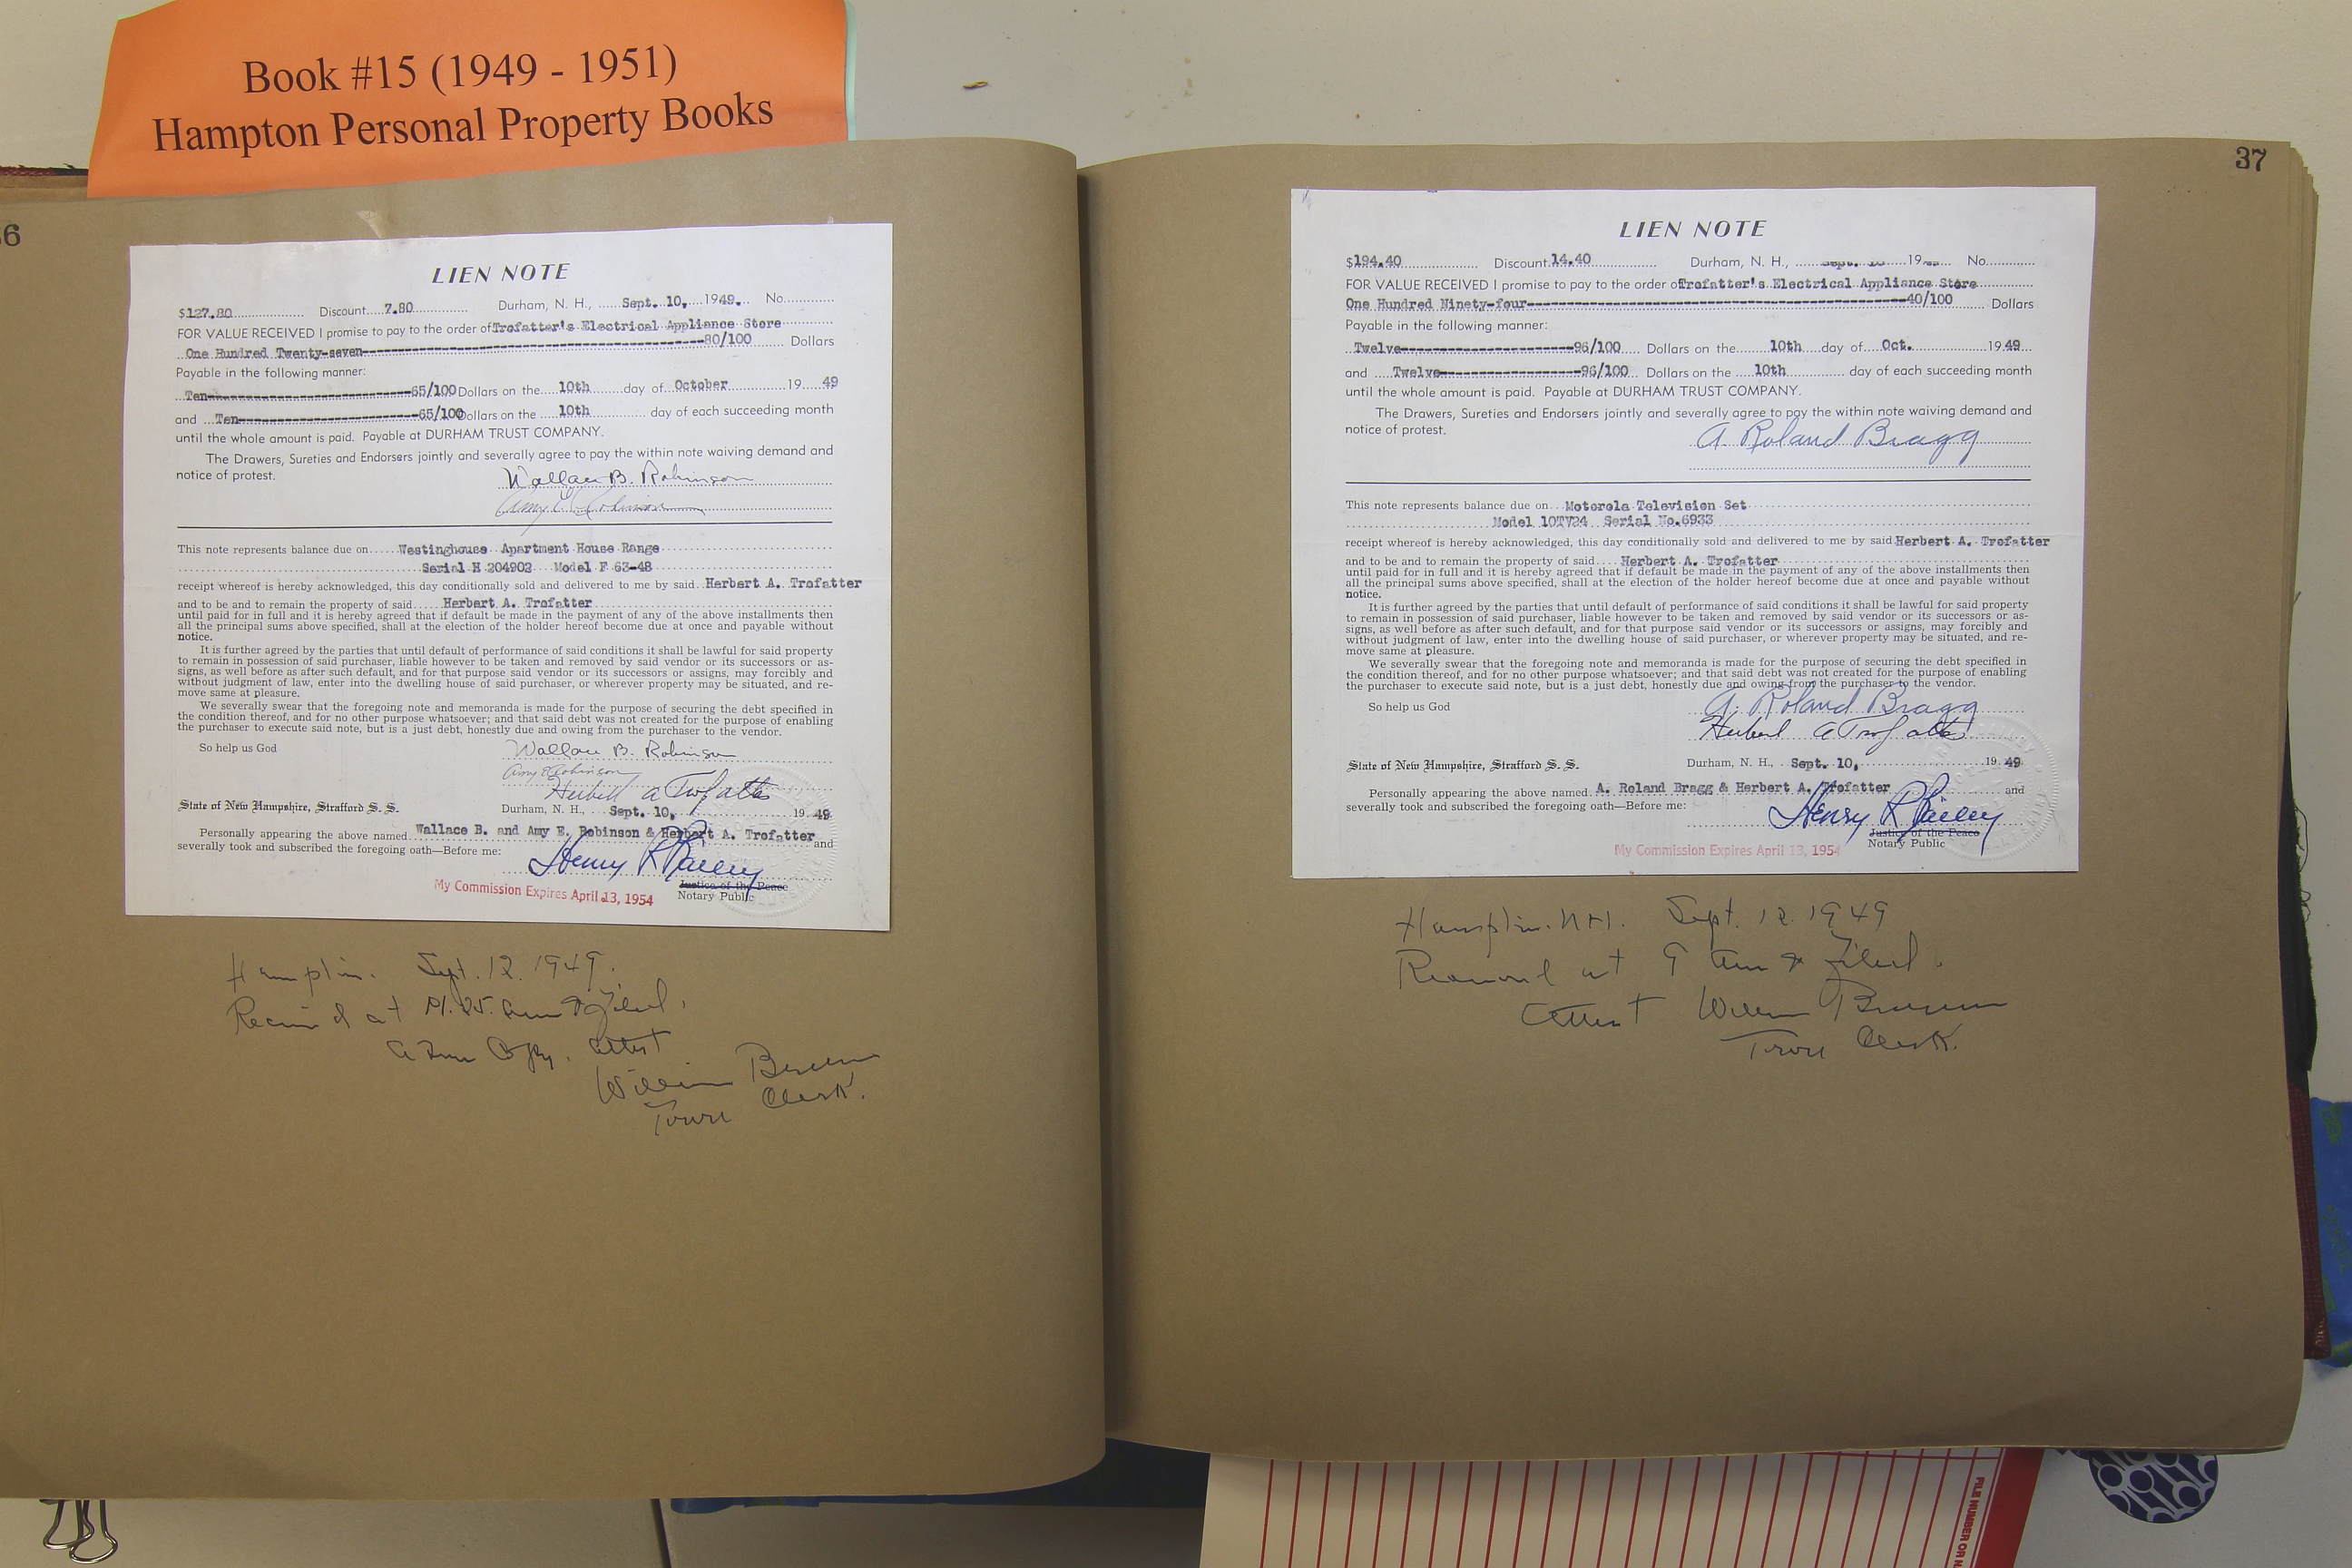 Book #15 (1949 - 1951)
Hampton Personal Property Books
6
LIEN NOTE
$127.80 Discount 7.80 Durham, N. H., Sept. 10, 1949. No.
FOR VALUE RECEIVED I promise to pay to the order of Trofatter's Electrical Appliance Store
One Hundred Twenty-seven---80/100 Dollars
Payable in the following manner:
Ten---65/100 Dollars on the 10th day of October 19 49
and Ten---65/100 Dollars on the 10th day of each succeeding month
until the whole amount is paid. Payable at DURHAM TRUST COMPANY.
The Drawers, Sureties and Endorsers jointly and severally agree to pay the within note waiving demand and
notice of protest.
Wallace B. Robinson
Amy E. Robinson
This note represents balance due on Westinghouse Apartment House Range
Serial H 204902 Model F 63-48
receipt whereof is hereby acknowledged, this day conditionally sold and delivered to me by said Herbert A. Trofatter
and to be and to remain the property of said Herbert A. Trofatter
until paid for in full and it is hereby agreed that if default be made in the payment of any of the above installments then
all the principal sums above specified, shall at the election of the holder hereof become due at once and payable without
notice.
It is further agreed by the parties that until default of performance of said conditions it shall be lawful for said property
to remain in possession of said purchaser, liable however to be taken and removed by said vendor or its successors or as-
signs, as well before as after such default, and for that purpose said vendor or its successors or assigns, may forcibly and
without judgment of law, enter into the dwelling house of said purchaser, or wherever property may be situated, and re-
move same at pleasure.
We severally swear that the foregoing note and memoranda is made for the purpose of securing the debt specified in
the condition thereof, and for no other purpose whatsoever; and that said debt was not created for the purpose of enabling
the purchaser to execute said note, but is a just debt, honestly due and owing from the purchaser to the vendor.
So help us God
Wallace B. Robinson
Amy E Robinson
Herbert A Trofatter
State of New Hampshire, Strafford S. S. Durham, N. H., Sept. 10, 19 49
Personally appearing the above named Wallace B. and Amy E. Robinson & Herbert A. Trofatter and
severally took and subscribed the foregoing oath—Before me:
Henry R Bailey
Justice of the Peace
My Commission Expires April 13, 1954 Notary Public
Hampton. Sept. 12. 1949.
Received at 25. am & filed.
A True Copy. Attest
William Brown
Town Clerk.
37
LIEN NOTE
$194.40 Discount 14.40 Durham, N. H., Sept. 19 No.
FOR VALUE RECEIVED I promise to pay to the order o Trofatter's Electrical Appliance Store
One Hundred Ninety-four---40/100 Dollars
Payable in the following manner:
Twelve---96/100 Dollars on the 10th day of Oct. 19 49
and Twelve---96/100 Dollars on the 10th day of each succeeding month
until the whole amount is paid. Payable at DURHAM TRUST COMPANY.
The Drawers, Sureties and Endorsers jointly and severally agree to pay the within note waiving demand and
notice of protest.
A. Roland Bragg
This note represents balance due on Motorola Television Set
Model 10TV24 Serial No.6933
receipt whereof is hereby acknowledged, this day conditionally sold and delivered to me by said Herbert A. Trofatter
and to be and to remain the property of said Herbert A. Trofatter
until paid for in full and it is hereby agreed that if default be made in the payment of any of the above installments then
all the principal sums above specified, shall at the election of the holder hereof become due at once and payable without
notice.
It is further agreed by the parties that until default of performance of said conditions it shall be lawful for said property
to remain in possession of said purchaser, liable however to be taken and removed by said vendor or its successors or as-
signs, as well before as after such default, and for that purpose said vendor or its successors or assigns, may forcibly and
without judgment of law, enter into the dwelling house of said purchaser, or wherever property may be situated, and re-
move same at pleasure.
We severally swear that the foregoing note and memoranda is made for the purpose of securing the debt specified in
the condition thereof, and for no other purpose whatsoever; and that said debt was not created for the purpose of enabling
the purchaser to execute said note, but is a just debt, honestly due and owing from the purchaser to the vendor.
So help us God
A. Roland Bragg
Herbert A Trofatter
State of New Hampshire, Strafford S. S. Durham, N. H., Sept. 10, 19 49
Personally appearing the above named A. Roland Bragg & Herbert A. Trofatter and
severally took and subscribed the foregoing oath—Before me:
Henry R Bailey
Justice of the Peace
My Commission Expires April 13, 1954 Notary Public
Hampton. NH. Sept. 12. 1949
Received at 9 am & Filed.
Attest William Brown
Town Clerk.
FILE NUMBER OR N